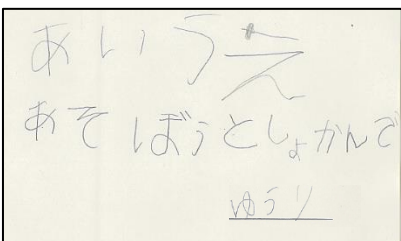 あいうえ
あそぼうとしょかんで
ゆうり